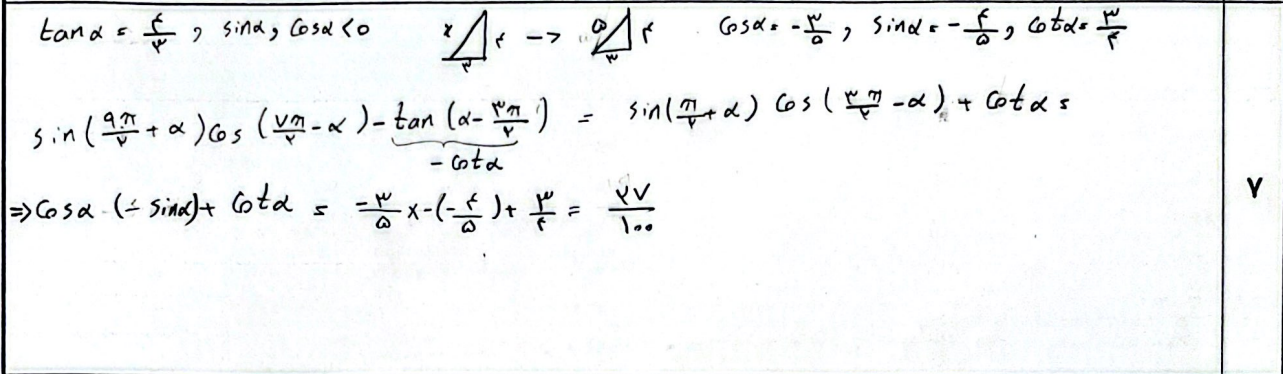 tanα = ۴/۳ , sinα, cosα <۰ x ۴ ۳ -> ۵ ۴ ۳ cosα = -۳/۵ , sinα = -۴/۵ , cotα = ۳/۴
sin(۹π/۲ + α)cos(۷π/۲ - α) - tan(α - ۳π/۲) = sin(π/۲ + α) cos(۳π/۲ - α) + cotα =
- cotα
=> cosα (- sinα) + cotα = -۳/۵ x -(-۴/۵) + ۳/۴ = ۲۷/۱۰۰
۷